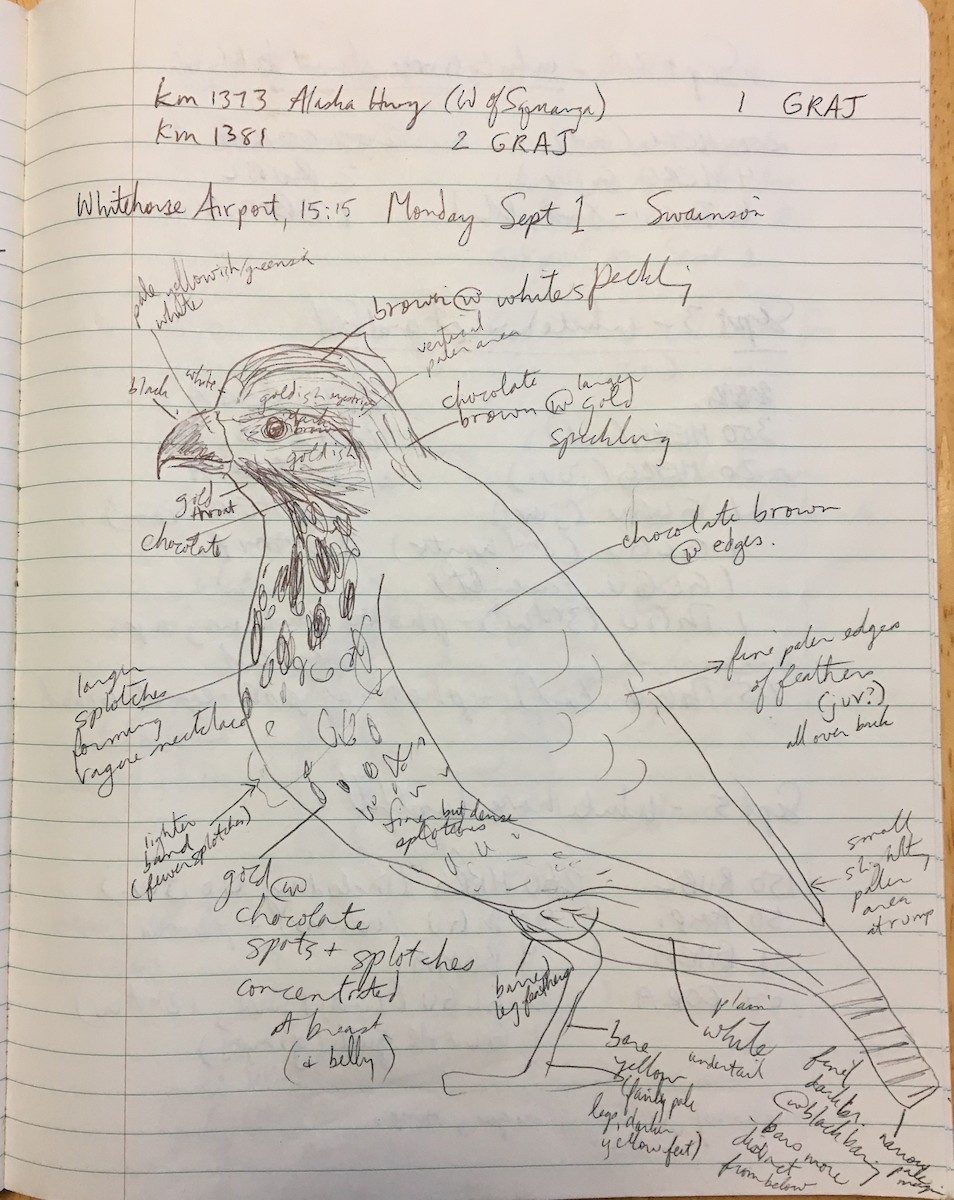 Km 1373 Alaska Hwy (W of Squanga) 1 GRAJ
Km 1381 2 GRAJ
Whitehorse Airport, 15:15 Monday Sept 1 - Swainson
pale yellowish/greenish
white
brown w white speckling
vertical
paler area
black
white
goldish
dark
brown
goldish
chocolate
brown w larger
gold
speckling
gold
throat
chocolate
chocolate brown
w edges.
fine paler edges
of feathers
(juv?)
all over back
larger
splotches
forming
vague necklace
lighter
band
(fewer splotches)
finer but dense
splotches
small
slightly
paler
area
at rump
gold w
chocolate
spots + splotches
concentrated
at breast
(+ belly)
barred
leg feathers
plain
white
undertail
bare
yellow
(fairly pale
legs, darker
yellow feet)
finely
dark br.
w black barring
bars more
distinct
from below
narrow
pale